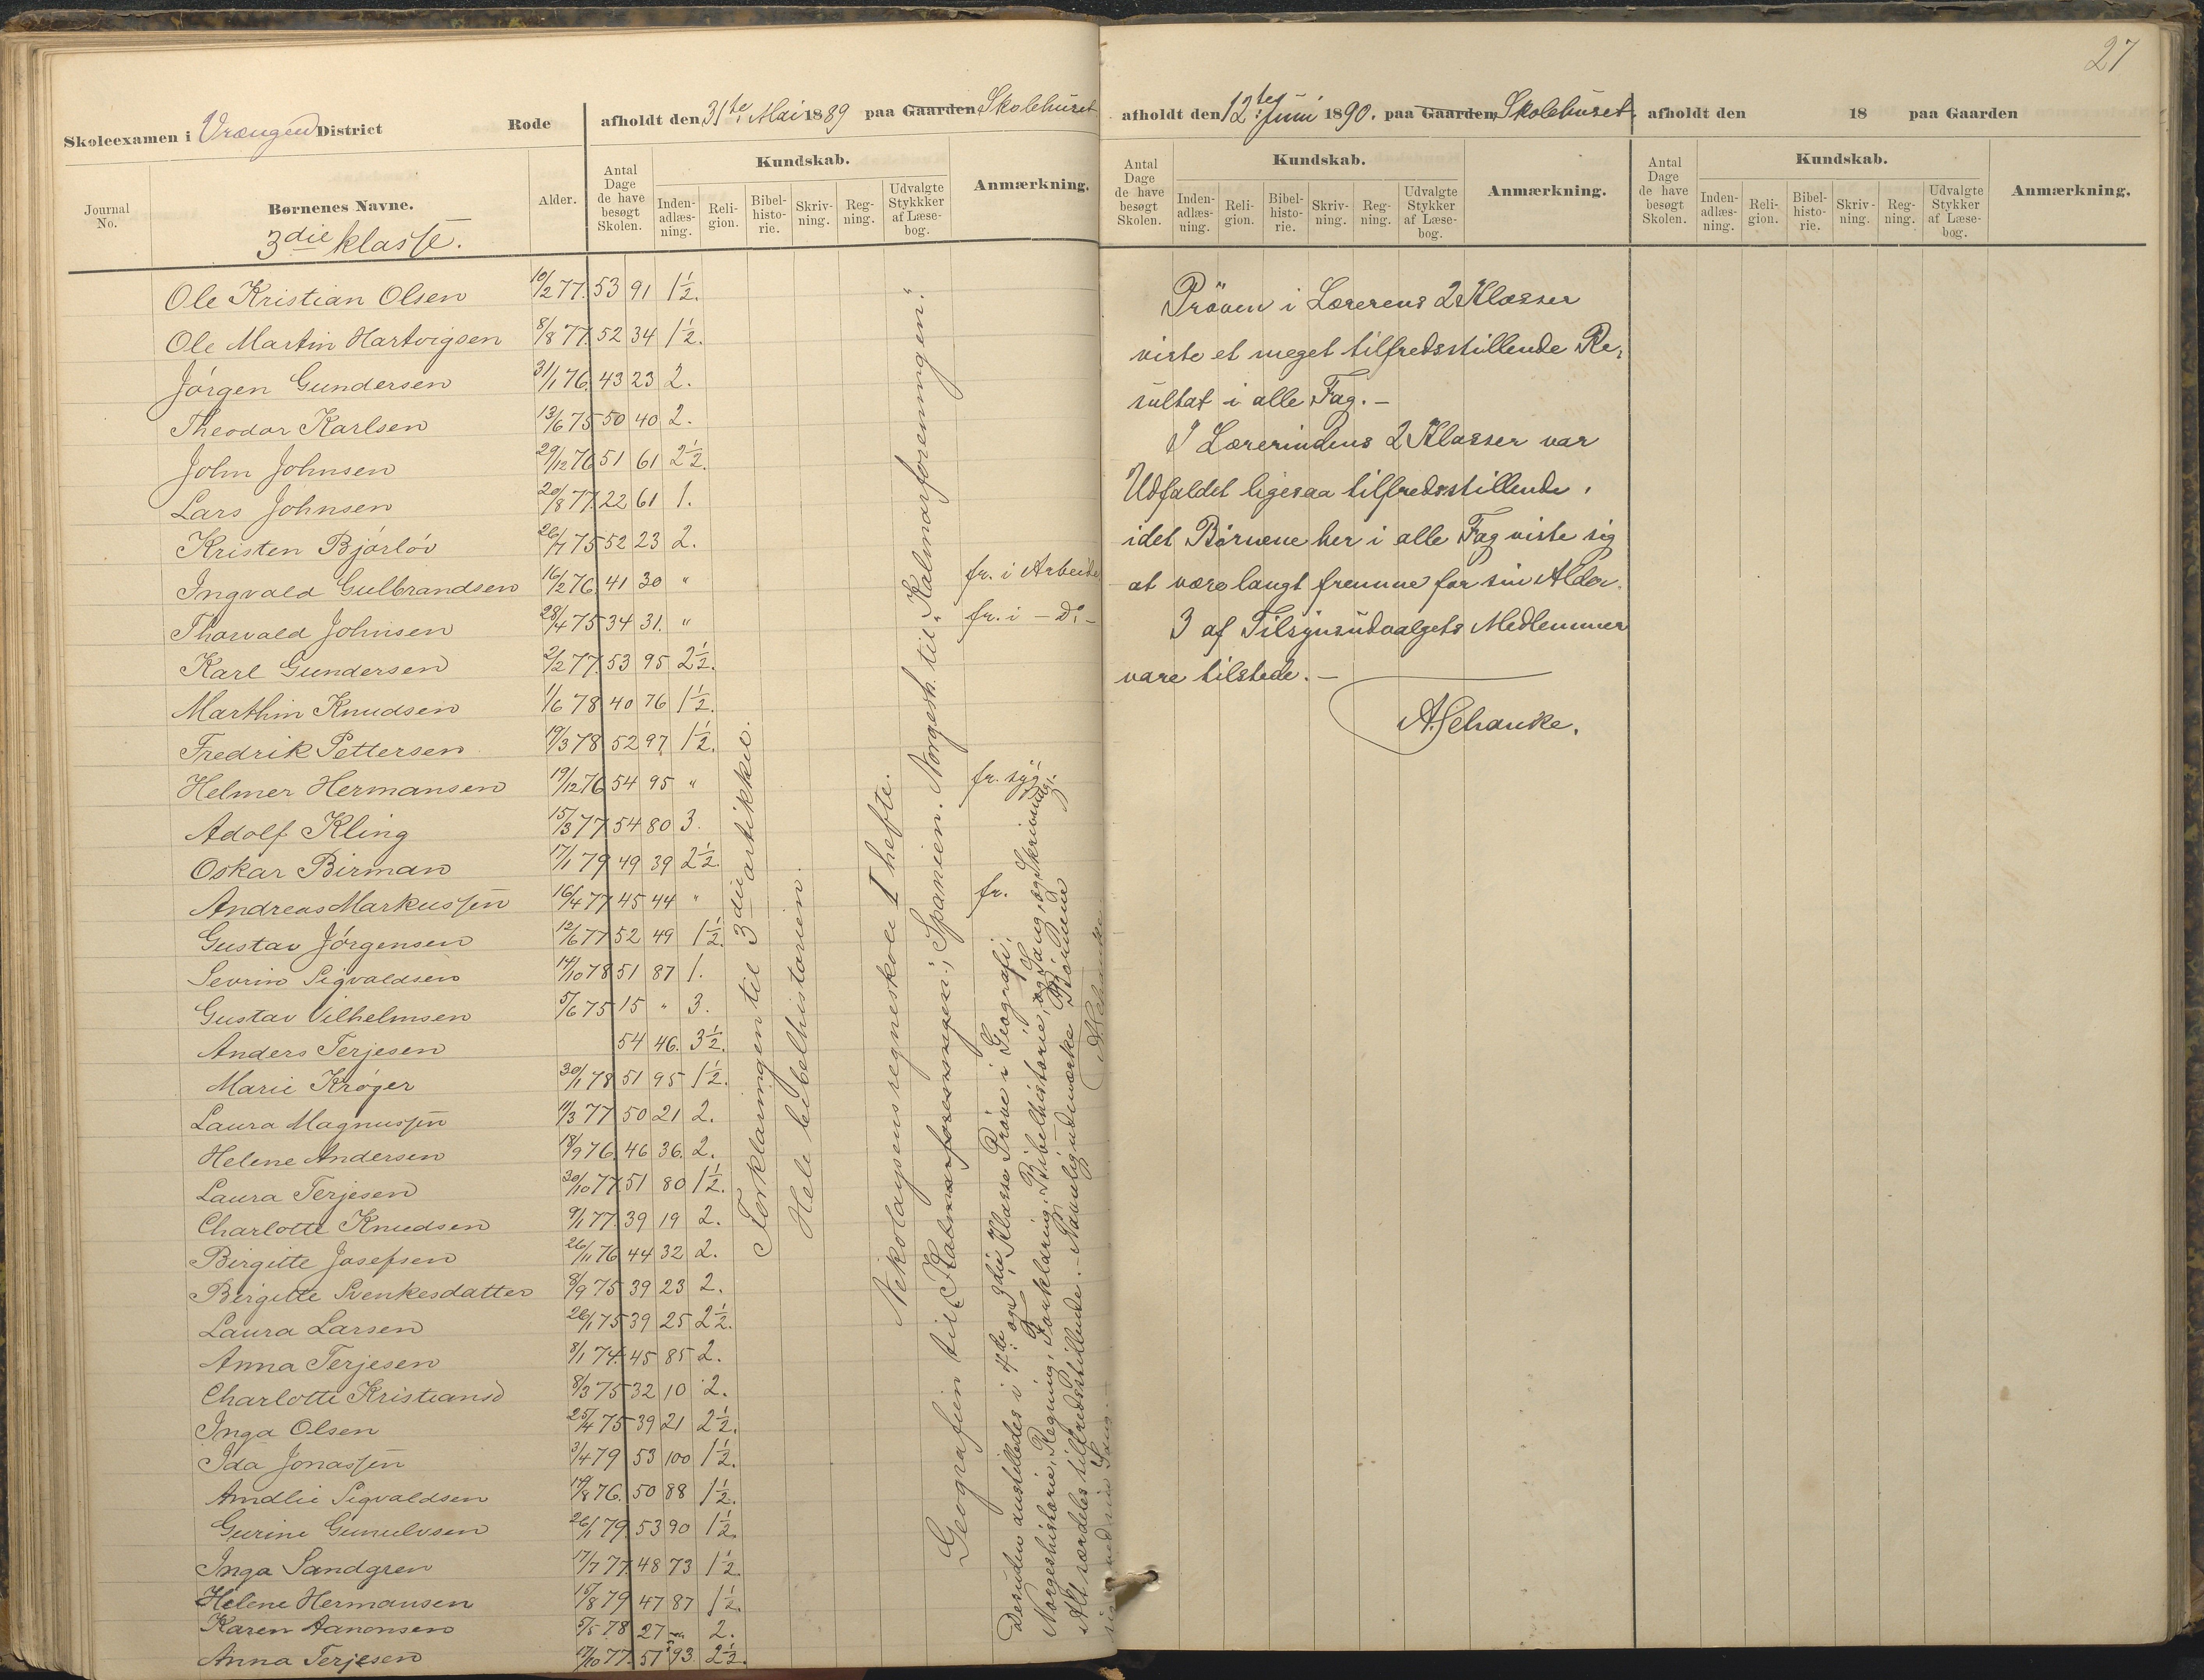 27
Skoleexamen i Vrængen District Rode afholdt den 31te Mai 1889 paa Gaarden Skolehuset
Journal No. Børnenes Navne. Alder. Antal Dage de have besøgt Skolen. Kundskab. Inden-adlæs-ning. Reli-gion. Bibel-histo-rie. Skriv-ning. Reg-ning. Udvalgte Stykkker af Læse-bog. Anmærkning.
3die klasse.
Ole Kristian Olsen 10/2 77. 53 91 1½.
Ole Martin Hartvigsen 8/8 77. 52 34 1½.
Jörgen Gundersen 31/1 76. 43 23 2.
Theodor Karlsen 13/6 75 50 40 2.
John Johnsen 29/12 76 51 61 2½.
Lars Johnsen 20/8 77. 22 61 1.
Kristen Bjørløv 26/7 75 52 23 2.
Ingvald Gulbrandsen 16/2 76. 41 30 " fr. i Arbeide
Thorvald Johnsen 28/4 75 34 31. " fr. i - Do -
Karl Gundersen 2/2 77. 53 95 2½.
Marthin Knudsen 1/6 78 40 76 1½.
Fredrik Pettersen 19/3 78 52 97 1½.
Helmer Hermansen 19/12 76 54 95 " fr. syg.
Adolf Kling 15/3 77 54 80 3.
Oskar Birman 17/1 79 49 39 2½.
Andreas Markussen 16/4 77 45 44 " fr.
Gustav Jörgensen 12/6 77 52 49 1½.
Sevrin Sigvaldsen 14/10 78 51 87 1.
Gustav Vilhelmsen 5/6 75 15 " 3.
Anders Terjesen 54 46. 3½.
Marie Krøger 30/1 78 51 95 1½.
Laura Magnussen 11/3 77 50 21 2.
Helene Andersen 18/9 76. 46 36. 2.
Laura Terjesen 30/10 77. 51 80 1½.
Charlotte Knudsen 9/1 77. 39 19 2.
Birgitte Josefsen 26/11 76 44 32 2.
Birgitte Svenkesdatter 8/9 75 39 23 2.
Laura Larsen 26/1 75 39 25 2½.
Anna Terjesen 8/1 74. 45 85 2.
Charlotte Kristiansd 8/3 75 32 10 2.
Inga Olsen 25/4 75 39 21 2½.
Ida Jonassen 3/4 79 53 100 1½.
Amalie Sigvaldsen 19/8 76. 50 88 1½.
Gurine Gunulvsen 26/1 79. 53 90 1½.
Inga Sandgren 17/7 77. 48 73 1½
Helene Hermansen 15/8 79 47 87 1½.
Karen Aanonsen 5/5 78 27 2.
Anna Terjesen 17/10 77. 51 93 2½.
Forklaringen til 3die artikkel.
Hele bibelhistorien.
Nikolaysens regneskole I hefte.
Geografien til Spanien. Norgesh. til "Kalmarforeningen."
Desuden anstilledes i 4de og 3die Klasse Prøve i Geografi,
Norgeshistorie, Regning, Forklaring, Bibelhistorie, og Sang, og Skrivning.
Alt særdeles tilfredsstillende. - Navnlig udmærke Børnene
sig ved sin Sang.
A. Schanke
afholdt den 12te Juni 1890. paa Gaarden Skolehuset
Antal Dage de have besøgt Skolen. Kundskab. Inden-adlæs-ning. Reli-gion. Bibel-histo-rie. Skriv-ning. Reg-ning. Udvalgte Stykker af Læse-bog. Anmærkning.
Pröven i Lærerens 2 Klasser
viste et meget tilfredsstillende Re-
sultat i alle Fag. -
I Lærerindens 2 Klasser var
Udfaldet ligesaa tilfredsstillende,
idet Börnene her i alle Fag viste sig
at være langt fremme for sin Alder.
3 af Tilsynsudvalgets Medlemmer
vare tilstede. -
A. Schanke.
afholdt den 18 paa Gaarden
Antal Dage de have besøgt Skolen. Kundskab. Inden-adlæs-ning. Reli-gion. Bibel-histo-rie. Skriv-ning. Reg-ning. Udvalgte Stykker af Læse-bog. Anmærkning.